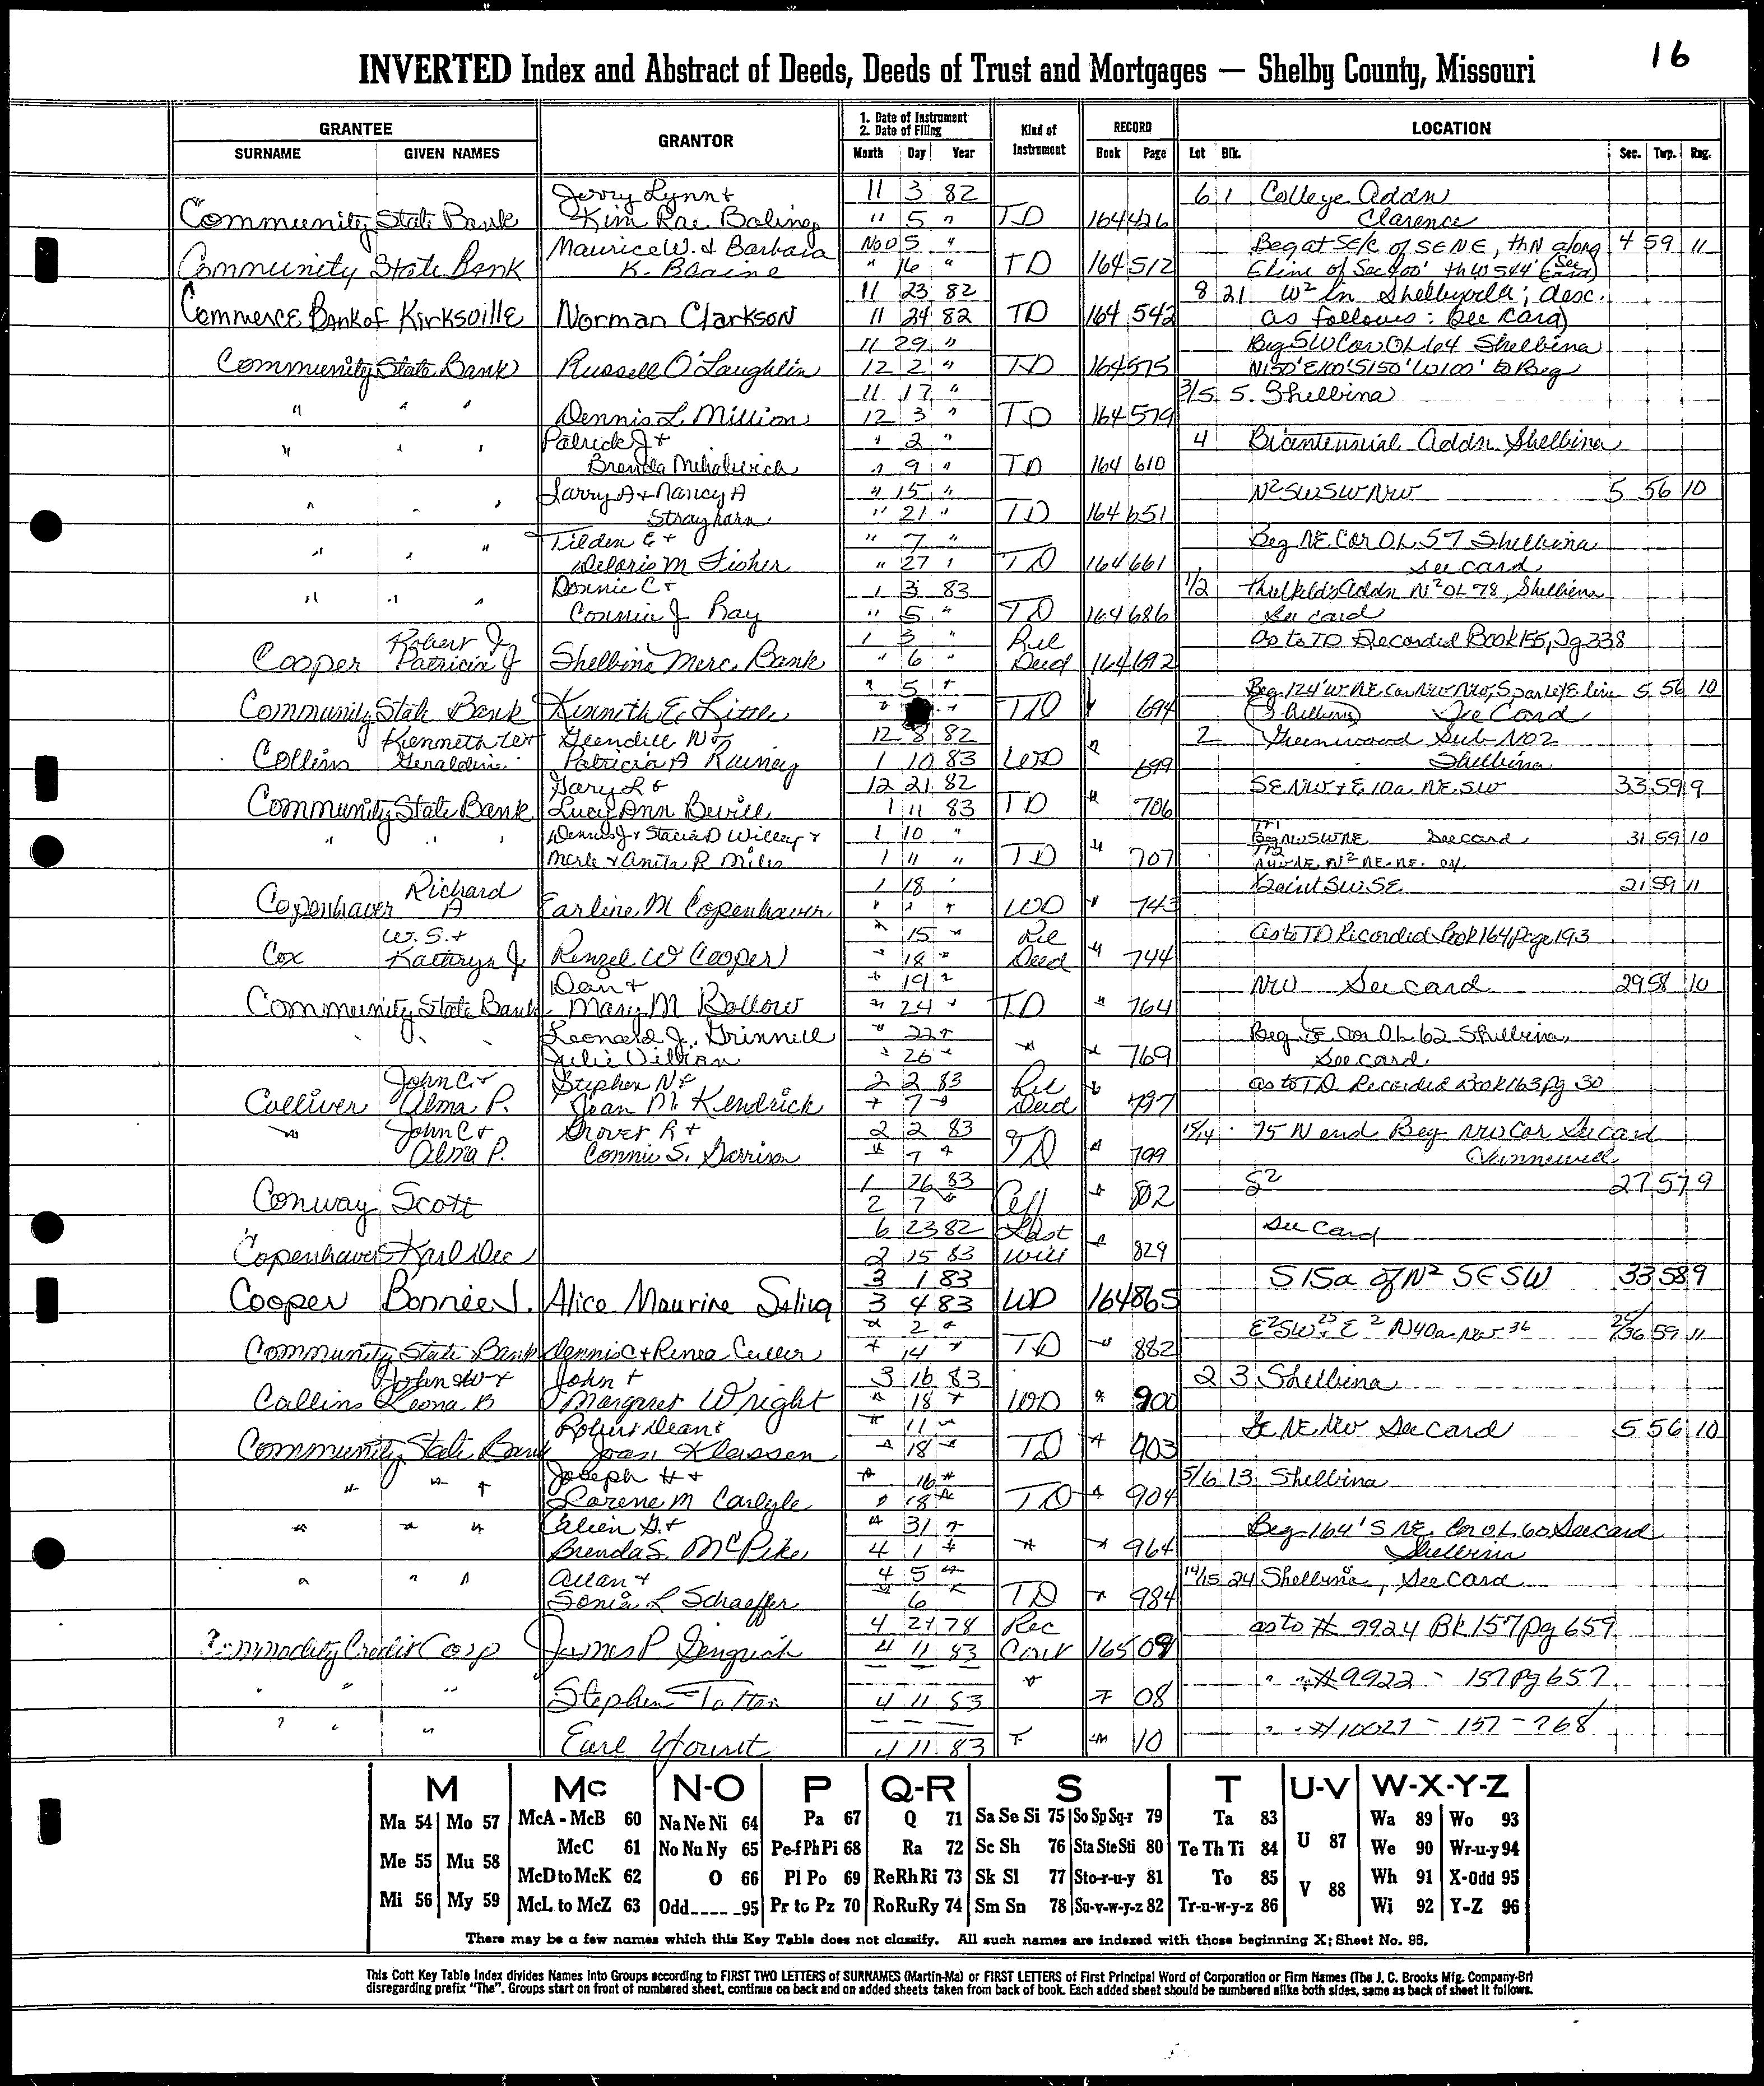 16
INVERTED Index and Abstract of Deeds, Deeds of Trust and Mortgages — Shelby County, Missouri
GRANTEE
SURNAME GIVEN NAMES
GRANTOR
1. Date of Instrument
2. Date of Filing
Month Day Year
Kind of Instrument
RECORD
Book Page
LOCATION
Lot Blk. Sec. Twp. Rng.
Jerry Lynn + 11 3 82 6 1 College Addn
Community State Bank Kim Rae " 5 " TD 164 426 Clarence
Maurice W. & Barbara Nov 5 " Beg at SE/c of SENE, thN along 4 59 11
Community State Bank K. Blaine " 16 " TD 164 512 E line of Sec 400' th W 544' (See Card)
11 23 82 8 21 W² in Shelbyville; desc.
Commerce Bank of Kirksville Norman Clarkson 11 24 82 TD 164 542 as follows: (See Card)
11 29 " Beg SW Cor OL 64 Shelbina
Community State Bank Russell O'Laughlin 12 2 " TD 164 575 N150' E100' S150' W100' to Beg
11 17 " 5 Shelbina
" " " Dennis L. Million 12 3 " TD 164 579
Patrick J + " 2 " 4 Bicentennial Addn. Shelbina
" " " Brenda Mihalevich " 9 " TD 164 610
Larry A + Nancy A " 15 " N²SWSWNW 5 56 10
" " Strayhorn " 21 " TD 164 651
Tilden E + " 7 " Beg NE Cor OL 57 Shelbina
" " " Deloris M Fisher " 27 " TD 164 661 see card
Donnie C + 1 3 83 1/2 Addn N² OL 78, Shelbina
" " " Connie J Ray " 5 " TD 164 686 See card
Robert J 1 3 " Rel As to TD Recorded Book 155, Pg 338
Cooper Patricia J Shelbina Merc. Bank " 6 " Deed 164 692
" 5 " Beg 124' W NE cor NW NW, S E line 5 56 10
Community State Bank Kenneth E. Little TD " 694 (Shelbina) See Card
Kenneth W + Glendell N + 12 8 82 2 Greenwood Sub No 2
Collins Geraldine Patricia A Rainey 1 10 83 WD " 699 Shelbina
Gary L + 12 21 82 SE NW + E 10a NE SW 33 59 9
Community State Bank Lucy Ann Bevill 1 11 83 TD " 706
Dennis J + Stacia D Willey + 1 10 " Beg NW SW NE See card 31 59 10
" " " Merle + Anita R Miles 1 11 " TD " 707
Richard 1 18 " SW SE 21 59 11
Copenhaver A Earline M Copenhaver " " " WD " 743
W. S. + " 15 " Rel As to TD Recorded Book 164 page 193
Cox Kathryn J Renzel W Cooper " 18 " Deed " 744
Dan + " 19 " NW See card 29 58 10
Community State Bank Mary M Bollow " 24 " TD " 764
Leonard J. Grinnell " 22 " Beg Cor OL 62 Shelbina
" " " Julie " 26 " " " 769 See card
John C. + Stephen N + 2 2 83 Rel As to TD Recorded Book 163 pg 30
Culliver Alma P. Joan M. Kendrick " 7 " Deed " 797
" John C + Grover R + 2 2 83 75 N end Beg NW Cor See card
Alma P. Connie S. Garrison " 7 " TD " 799 Hunnewell
1 26 83 S² 27 57 9
Conway Scott 2 7 " Aff " 802
6 23 82 Last See Card
Copenhaver Karl Dee 2 15 83 Will " 829
3 1 83 S 15a of N² SE SW 33 58 9
Cooper Bonnie J. Alice Maurine 3 4 83 WD 164 865
" 2 " E²SW 25; E² N40a NW 36 25/36 59 11
Community State Bank Dennis C + Renea Culler " 14 " TD " 882
John W + John + 3 16 83 2 3 Shelbina
Collins Leona B Margaret Wright " 18 " WD " 900
Robert Dean + " 11 " NE NW See card 5 56 10
Community State Bank Joan Klassen " 18 " TD " 903
Joseph H + " 16 " 5/6 13 Shelbina
" " " Larene M Carlyle " 18 " TD " 904
G. + " 31 " Beg 164' S NE Cor OL 60 See card
" " " Brenda S. McPike 4 1 " " " 964 Shelbina
Allan + 4 5 " 14/15 24 Shelbina, See Card
" " " Sonia L Schaeffer " 6 " TD " 984
4 21 78 Rec as to # 9924 Bk 157 pg 659
Commodity Credit Corp James P Gingrich 4 11 83 165 09
" " # 9922 - 157 pg 657
" " " Stephen Totten 4 11 83 " " 08
" " # 10027 - 157 - 768
" " " Earl Yount 4 11 83 " " 10
M Mc N-O P Q-R S T U-V W-X-Y-Z
Ma 54 Mo 57 McA - McB 60 Na Ne Ni 64 Pa 67 Q 71 Sa Se Si 75 So Sp Sq-r 79 Ta 83 Wa 89 Wo 93
McC 61 No Nu Ny 65 Pe-f Ph Pi 68 Ra 72 Sc Sh 76 Sta Ste Sti 80 Te Th Ti 84 U 87 We 90 Wr-u-y 94
Me 55 Mu 58 McD to McK 62 O 66 Pl Po 69 Re Rh Ri 73 Sk Sl 77 Sto-r-u-y 81 To 85 V 88 Wh 91 X-Odd 95
Mi 56 My 59 McL to McZ 63 Odd____ -95 Pr to Pz 70 Ro Ru Ry 74 Sm Sn 78 Su-v-w-y-z 82 Tr-u-w-y-z 86 Wi 92 Y-Z 96
There may be a few names which this Key Table does not classify. All such names are indexed with those beginning X; Sheet No. 95.
This Cott Key Table Index divides Names into Groups according to FIRST TWO LETTERS of SURNAMES (Martin-Ma) or FIRST LETTERS of First Principal Word of Corporation or Firm Names (The J. C. Brooks Mfg. Company-Br)
disregarding prefix "The". Groups start on front of numbered sheet, continue on back and on added sheets taken from back of book. Each added sheet should be numbered alike both sides, same as back of sheet it follows.